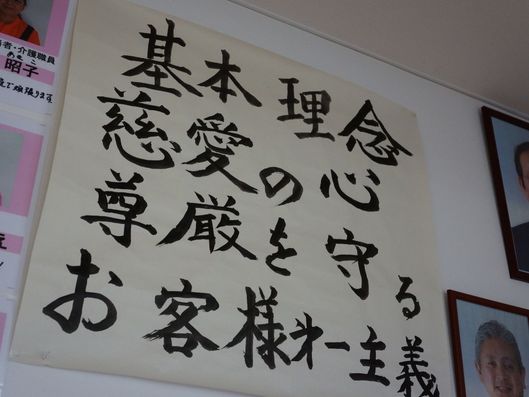 基本理念
慈愛の心
尊厳を守る
お客様才一主義
者・介護職員
あきこ
昭子